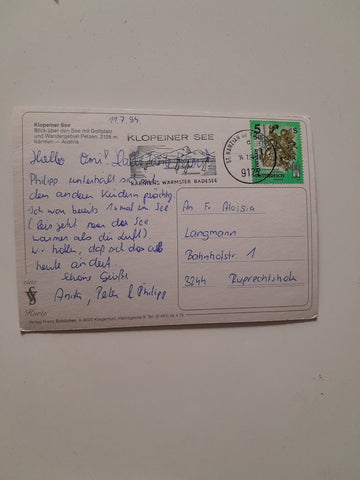 Klopeiner See
Blick über den See mit Golfplatz
und Wandergebiet Petzen, 2126 m
Kärnten – Austria
11.7.94
KLOPEINER SEE
KÄRNTENS WÄRMSTER BADESEE
5 S
ÖSTERREICH
Hallo Omi!
Philipp unterhält sich mit
den andern Kindern prächtig.
Ich war bereits 1x mal im See
(bis jetzt war der See
wärmer als die Luft).
Wir hoffen, daß sich das ab
heute ändert.
Schöne Grüße
Anita, Peter & Philipp
An Fr. Aloisia
Langmann
Bahnholstr. 1
3244 Ruprechtshofen
eine
Karte
Verlag Franz Schilcher, A-9020 Klagenfurt